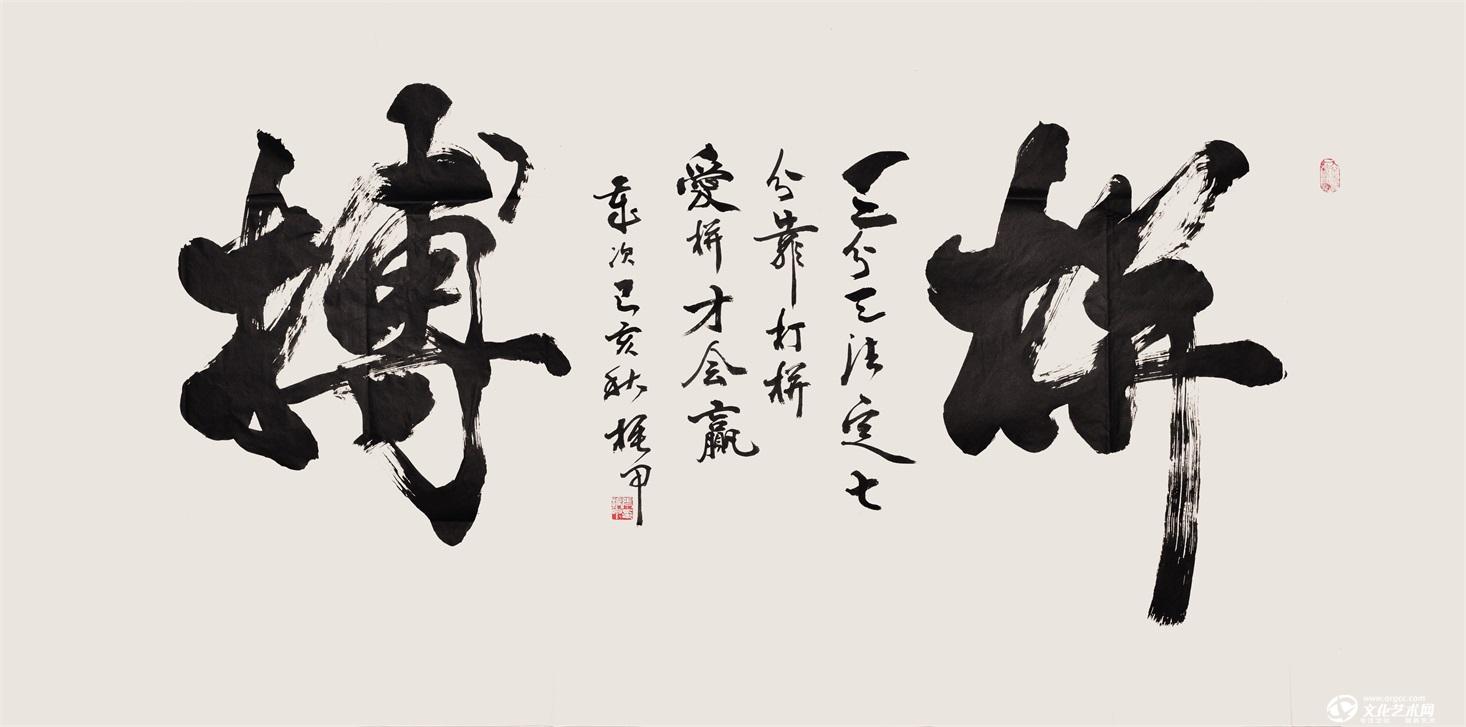 拼
三分天注定七
分靠打拼
愛拼才会赢
歲次己亥秋
搏
www.orgcc.com
文化艺术网